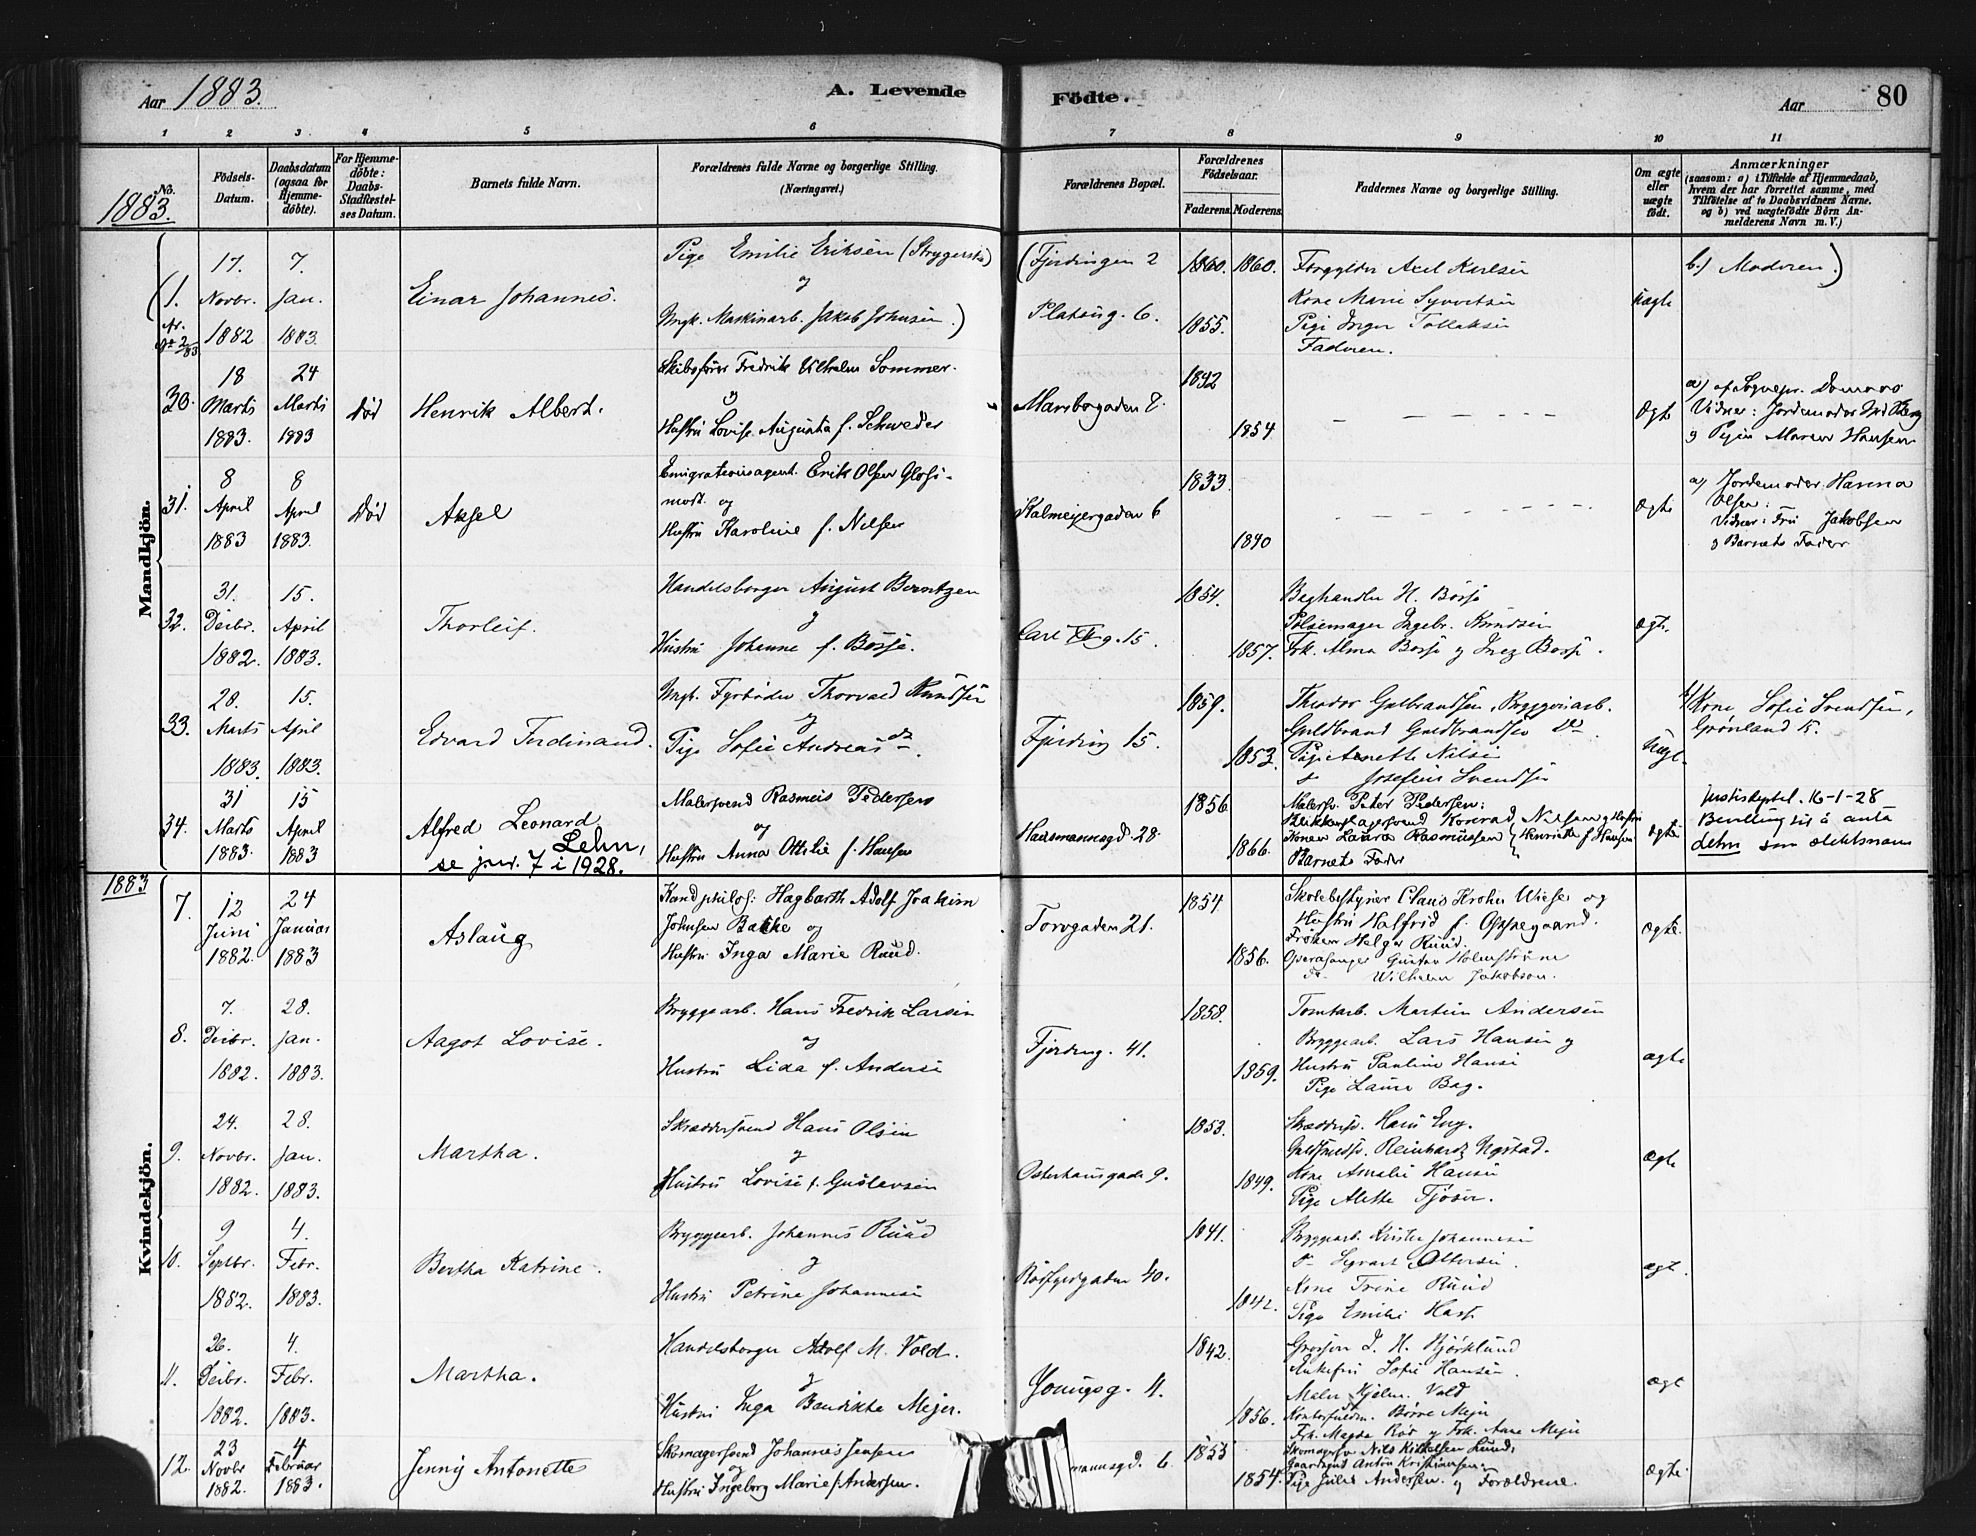 Aar 1883.
A. Levende Födte.
Aar 80
1 2 3 4 5 6 7 8 9 10 11
No.
1883.
Födsels-Datum.
Daabsdatum (ogsaa for Hjemme-döbte).
For Hjemme-döbte: Daabs-Stadfæstel-ses Datum.
Barnets fulde Navn.
Forældrenes fulde Navne og borgerlige Stilling.
(Næringsvei.)
Forældrenes Bopæl.
Forældrenes Födselsaar.
Faderens. Moderens.
Faddernes Navne og borgerlige Stilling.
Om ægte eller uægte födt.
Anmærkninger
(saasom: a) i Tilfælde af Hjemmedaab, hvem der har forrettet samme, med Tilföielse af to Daabsvidners Navne. og b) ved uægtefödte Börn An-melderens Navn m. V.)
Mandkjön.
(1.
17. Novbr. 1882
7. Jan. 1883.
Einar Johannes.
Pige Emilie Eriksen (Strygerske)
og
Ungk. Maskinarb. Jakob Johnsen.)
(Fjerdingen 2
Platoug. 6.
1860. 1860.
1855.
Forgylder Axel Karlsen
Kone Marie Syvertsen
Pige Inger Tollaksen
Faderen.
uægte
b.) Moderen.)
30.
18 Marts 1883.
24 Marts 1883
Död
Henrik Albert.
Skibsförer Fredrik Vilhelm Sommer.
og
Hustru Lovise Augusta f. Schweder
1842
1854
Ægte
a) af Sognepr.
Vidner: Jordemoder
og Pigen Maren Hansen
31.
8 April 1883
8 April 1883.
Död
Aksel
Emigrationsagent. Erik Olsen
og
Hustru Karoline f. Nilsen
Kalmeyergaden 6
1833
1840
Ægte
a) Jordemoder Hanna
Olsen:
Vidner: Fru Jakobsen
og Barnets Fader
32.
31. Decbr. 1882.
15. April 1883.
Thorleif.
Handelsborger August Berntzen
og
Hustru Johanne f. Børse.
Carl XII g. 15.
1854.
1857.
Børse
Pølsemager Ingebr. Knudsen
Frk. Alma Børse og Inez Børse.
ægte
33.
28. Marts 1883.
15. April 1883.
Edvard Ferdinand.
Ungk. Fyrbøder Thorvald Knudsen
og
Pige Sofie Andreasdr.
Fjerding 15.
1859.
1853.
Theodor Gulbrandsen, Bryggeriarb.
Guldbrand Guldbrandsen Do
Pige Anette Nilsen
Josefine Svendsen
Uægte
b/ Kone Sofie Svendsen,
Grønland 15.
34.
31 Marts 1883.
15 April 1883
Alfred Leonard
Lehn,
se jnr. 7 i 1928.
Malersvend Rasmus Pedersen
og
Hustru Anna Ottilie f. Hansen
Hausmannsgd. 28.
1856
1866.
Malersv. Peter Pedersen:
Blikkenslagersvend Konrad Nilsen og Hustru
Konen Laura Rasmussen Henriette f. Hansen
Barnets Fader
ægte
Justisdeptet. 16-1-28
Bevilling til å anta
Lehn som slektsnavn
1883
Kvindekjön.
7.
12 Juni 1882.
24 Januar 1883
Aslaug
Kand philos: Hagbarth Adolf Joakim
Johnsen Bakke og
Hustru Inga Marie Ruud.
Torvgaden 21.
1854.
1856.
Skolebestyrer Claus Krohn Wiese og
Hustru Halfrid f. Oppegaard.
Frøken Helga Ruud.
Operasanger Gustav Holmstrøm
Do. Wilhelm Jakobson.
ægte.
8.
7. Decbr. 1882.
28. Jan. 1883.
Aagot Lovise.
Bryggearb. Hans Fredrik Larsen
og
Hustru Lida f. Andersen
Fjerding. 41.
1858.
1859.
Tomtarb. Martin Andersen
Bryggearb. Lars Hansen og
Hustru Pauline Hansen
Pige Laura Bag.
ægte
9.
24. Novbr. 1882.
28. Jan. 1883.
Martha.
Skræddersvend Hans Olsen
og
Hustru Lovise f. Gustavsen
Osterhausgade 9.
1853.
1849.
Skræddersv. Hans Eng.
Guldsmeds. Reinhardt Ugstad.
Kone Amalie Hansen
Pige Alette Tjøsen.
ægte
10.
9 Septbr. 1882.
4. Febr. 1883.
Bertha Katrine.
Bryggearb. Johannes Ruud
og
Hustru Petrine Johannesen
40.
1841.
1842.
Bryggearb. Krister Johannesen
Ottersen
Kone Trine Ruud
Pige Emilie
ægt.
11.
26. Decbr. 1882.
4. Febr. 1883.
Martha.
Handelsborger Adolf M. Vold.
og
Hustru Inga Bendikte Mejer.
Youngsg. 4.
1842.
1856.
H. Bjørklund
Enkefru Sofie Hansen.
Maler Hjelm. Vold
Børre Mejer
Frk. Magda og Frk. Anne Mejer
ægt
12.
23 Novbr 1882.
4 Februar 1883.
Jenny Antonette
Skomagersvend Johannes Jensen
og
Hustru Ingeborg Marie f. Andersen.
mannsgd. 6.
1853
1854.
Skomagersv Nils Kittelsen Lund,
Gaardsgut Anton Kristiansen.
Pige Julie Andersen. og Forældrene.
ægte.